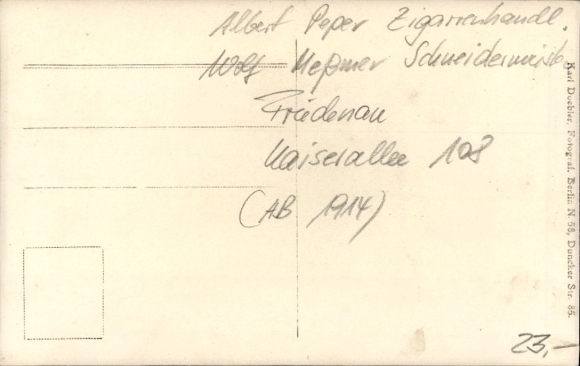 Albert Peper Zigarrenhandl.
Wolf Meßmer Schneidermeister
Friedenau
Kaiserallee 108
(AB 1914)
Karl Doebler, Fotograf, Berlin N 58, Duncker Str. 85.
23,-